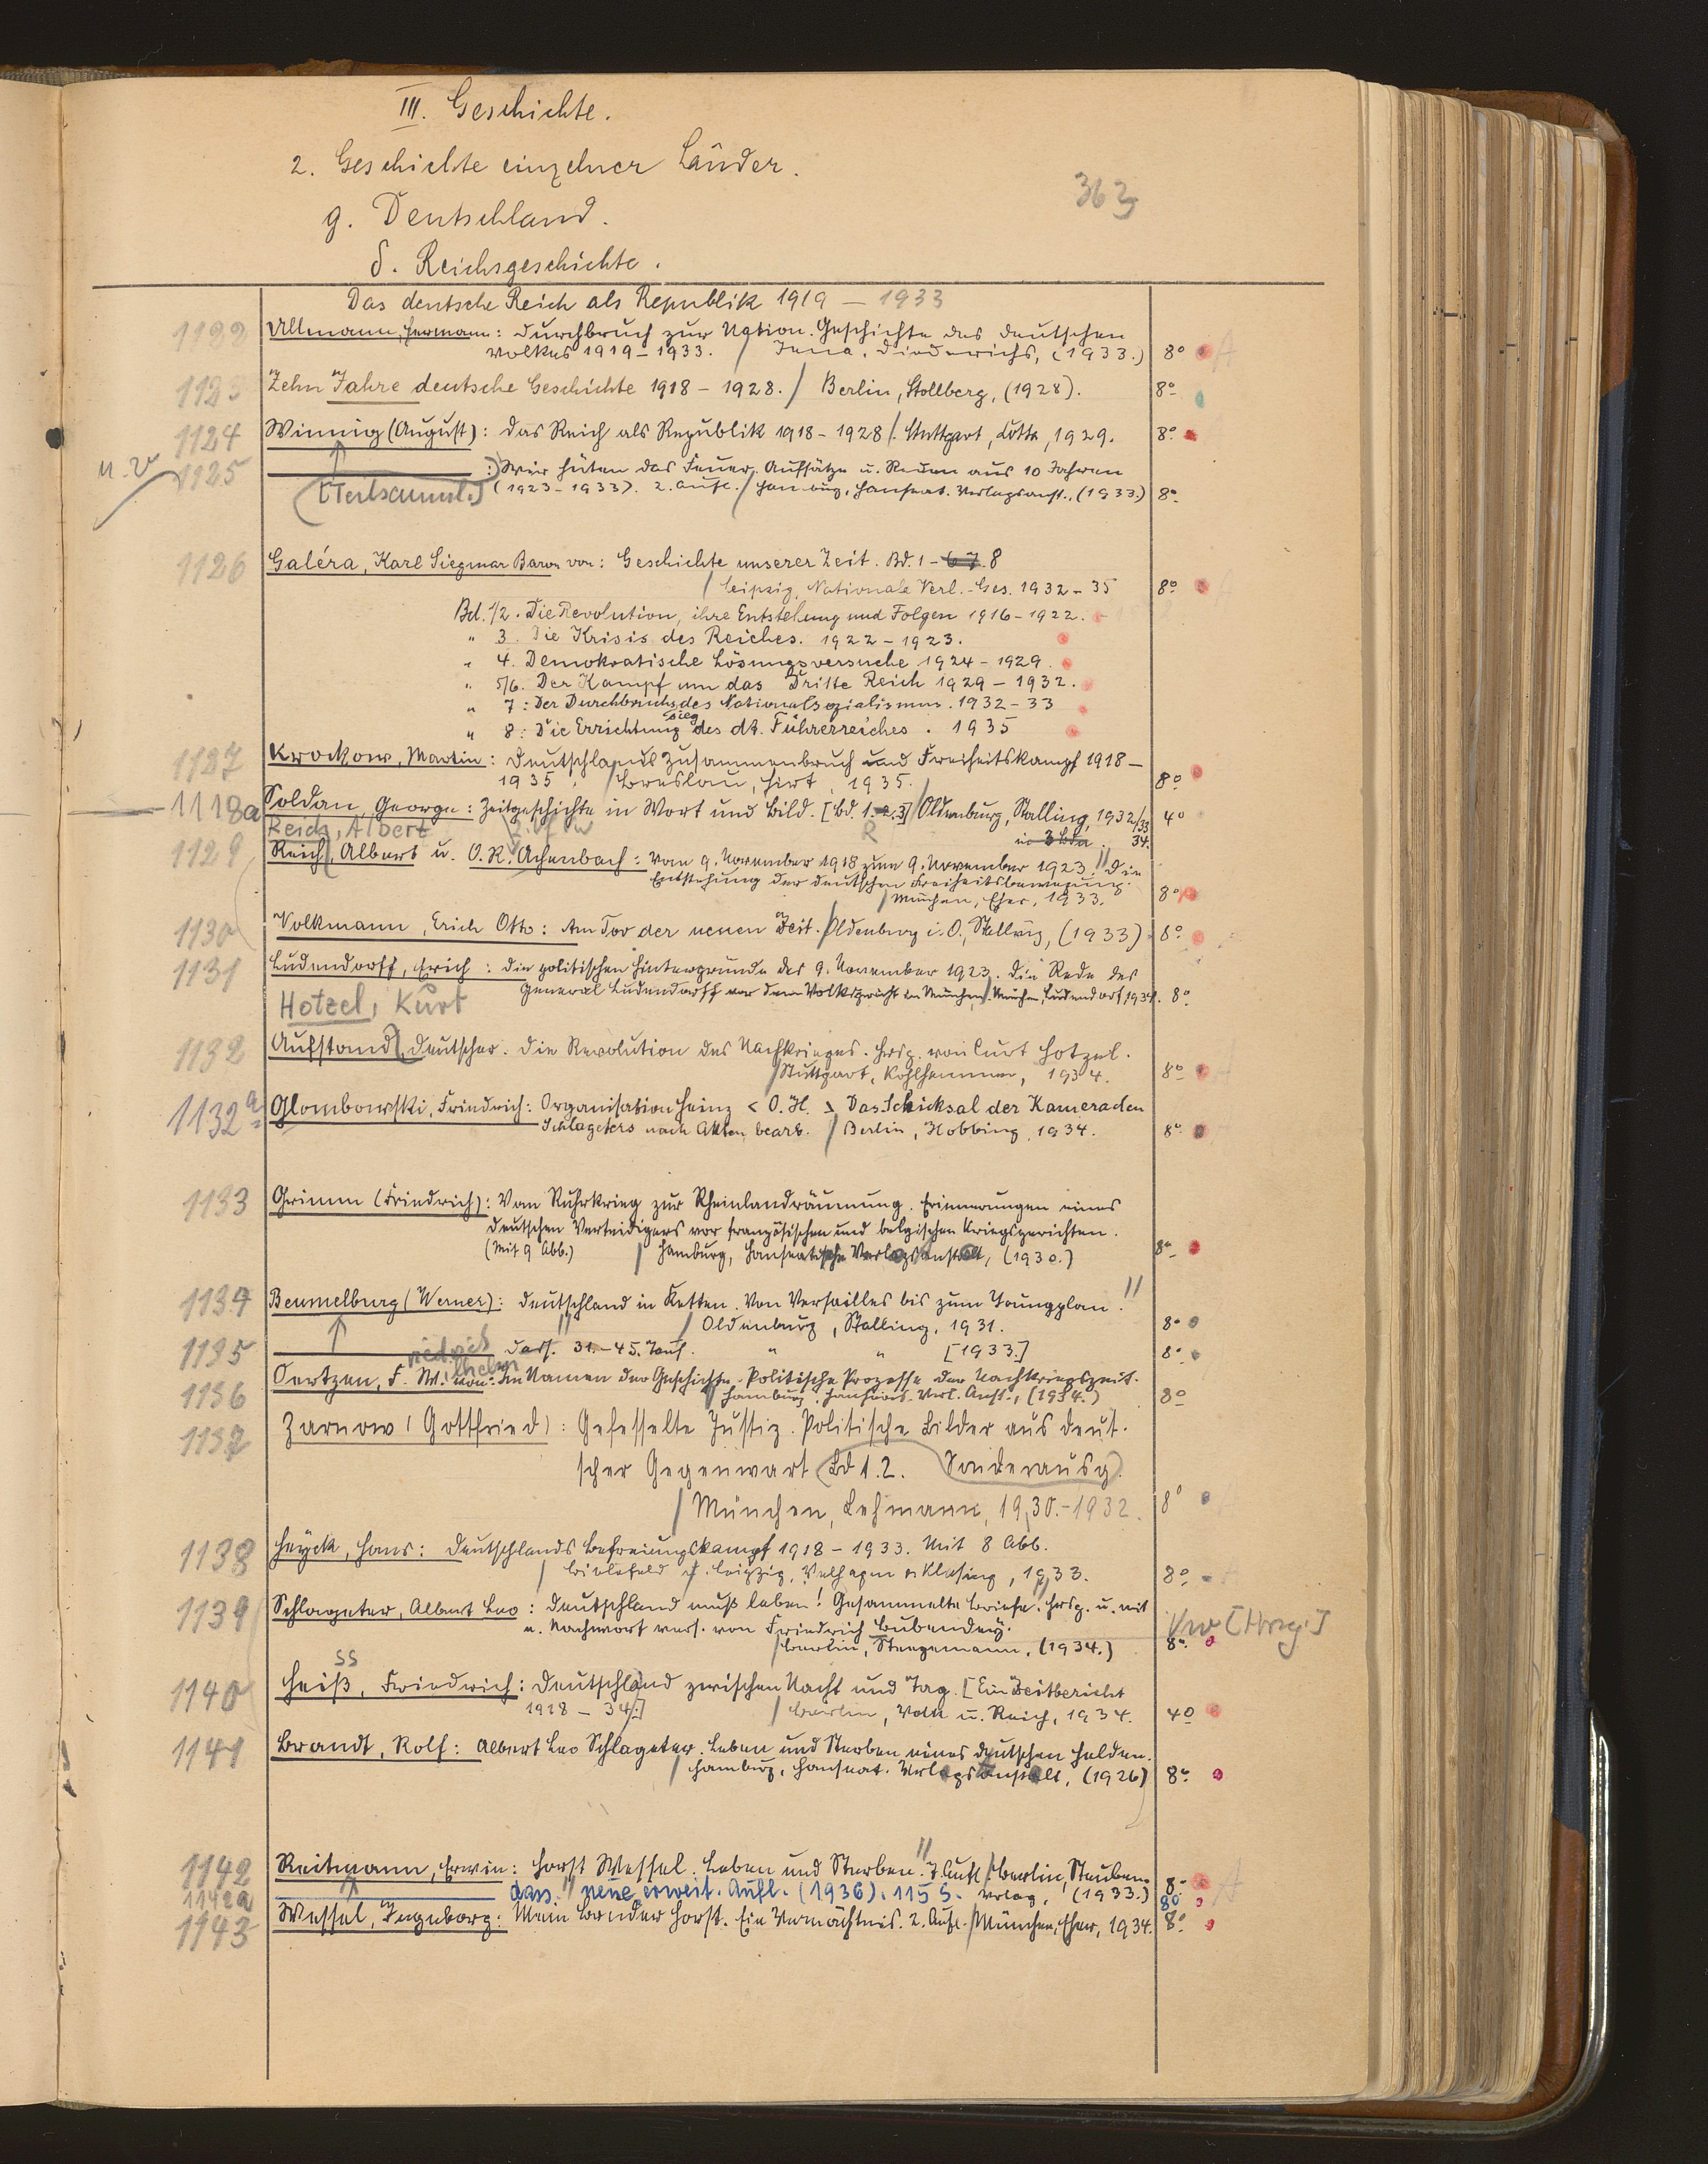 III. Geschichte.
2. Geschichte einzelner Länder.
363
g. Deutschland.
δ. Reichsgeschichte.
Das deutsche Reich als Republik 1919 – 1933
1122 Ullmann, Hermann: Durchbruch zur Nation. Geschichte des deutschen
Volkes 1919–1933. / Jena, Diederichs, (1933.) 8°
1123 Zehn Jahre deutsche Geschichte 1918–1928. / Berlin, Stollberg, (1928). 8°
1124 Winnig (August): Das Reich als Republik 1918–1928 /. Stuttgart, Cotta, 1929. 8°
1125 : Wir hüten das Feuer. Aufsätze u. Reden aus 10 Jahren
(1923–1933). 2. Aufl. / Hamburg, Hanseat. Verlagsanst., (1933.) 8°
1126 Galéra, Karl Siegmar Baron von: Geschichte unserer Zeit. Bd. 1 – 6 7. 8
/ Leipzig, Nationale Verl.-Ges. 1932–35 8°
Bd. 1/2. Die Revolution, ihre Entstehung und Folgen 1916–1922.
" 3. Die Krisis des Reiches. 1922–1923.
" 4. Demokratische Lösungsversuche 1924–1929.
" 5/6. Der Kampf um das Dritte Reich 1929–1932.
" 7: Der Durchbruch des Nationalsozialismus. 1932–33
sieg
" 8: Die Errichtung des dt. Führerreiches. 1935
1127 Krockow, Martin: Deutschlands Zusammenbruch und Freiheitskampf 1918–
1935. / Breslau, Hirt, 1935. 8°
1118a Soldan, George: Zeitgeschichte in Wort und Bild. [Bd. 1. 2. 3] / Oldenburg, Stalling, 1932/33 4°
Reich, Albert
in 3 Bdn. 34.
1129 Reich, Albert u. O. R. Achenbach: Vom 9. November 1918 zum 9. November 1923. Die
Entstehung der deutschen Freiheitsbewegung.
/ München, Eher, 1933. 8°
1130 Volkmann, Erich Otto: Am Tor der neuen Zeit. / Oldenburg i. O., Stalling, (1933) 8°
1131 Ludendorff, Erich: Die politischen Hintergründe des 9. November 1923. Die Rede des
General Ludendorff vor dem Volksgericht in München. / München, Ludendorff 1934. 8°
Hotzel, Kurt
1132 Aufstand, Deutscher. Die Revolution des Nachkrieges. Hrsg. von Curt Hotzel.
/ Stuttgart, Kohlhammer, 1934. 8°
1132a Glombowski, Friedrich: Organisation Heinz < O. H. > Das Schicksal der Kameraden
Schlageters nach Akten bearb. / Berlin, Hobbing, 1934. 8°
1133 Grimm (Friedrich): Vom Ruhrkrieg zur Rheinlandräumung. Erinnerungen eines
deutschen Verteidigers vor französischen und belgischen Kriegsgerichten.
(Mit 9 Abb.) / Hamburg, Hanseatische Verlagsanstalt, (1930.) 8°
1134 Beumelburg (Werner): Deutschland in Ketten. Von Versailles bis zum Youngplan.
/ Oldenburg, Stalling, 1931. 8°
1135 Dass. 31.–45. Taus. " " [1933.] 8°
1136 Oertzen, F. W. von: Im Namen der Geschichte. Politische Prozesse der Nachkriegszeit.
/ Hamburg, Hanseat. Verl. Anst., (1934.) 8°
1137 Zarnow (Gottfried): Gefesselte Justiz. Politische Bilder aus deut-
scher Gegenwart Bd 1.2. Sonderausg.
/ München, Lehmann, 1930.–1932. 8°
1138 Heyck, Hans: Deutschlands Befreiungskampf 1918–1933. Mit 8 Abb.
/ Bielefeld u. Leipzig, Velhagen & Klasing, 1933. 8°
1139 Schlageter, Albert Leo: Deutschland muß leben! Gesammelte Briefe. Hrsg. u. mit
e. Nachwort vers. von Friedrich Bubendey.
/ Berlin, Steegemann, (1934.) 8°
ss
1140 Heiß, Friedrich: Deutschland zwischen Nacht und Tag. [Ein Zeitbericht
1918–34.] / Berlin, Volk u. Reich, 1934. 4°
1141 Brandt, Rolf: Albert Leo Schlageter. Leben und Sterben eines deutschen Helden.
/ Hamburg, Hanseat. Verlagsanstalt, (1926) 8°
1142 Reitmann, Erwin: Horst Wessel. Leben und Sterben. 7. Aufl. / Berlin, Steuben- 8°
1142a dass. neue erweit. Aufl. (1936). 115 S. Verlag, (1933.) 8°
1143 Wessel, Ingeborg: Mein Bruder Horst. Ein Vermächtnis. 2. Aufl. / München, Eher, 1934. 8°